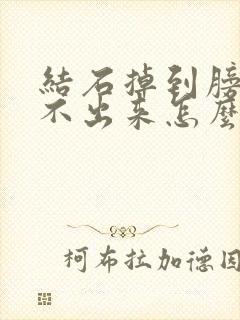 結石掉到膀
不出来怎麼
柯布拉加德因